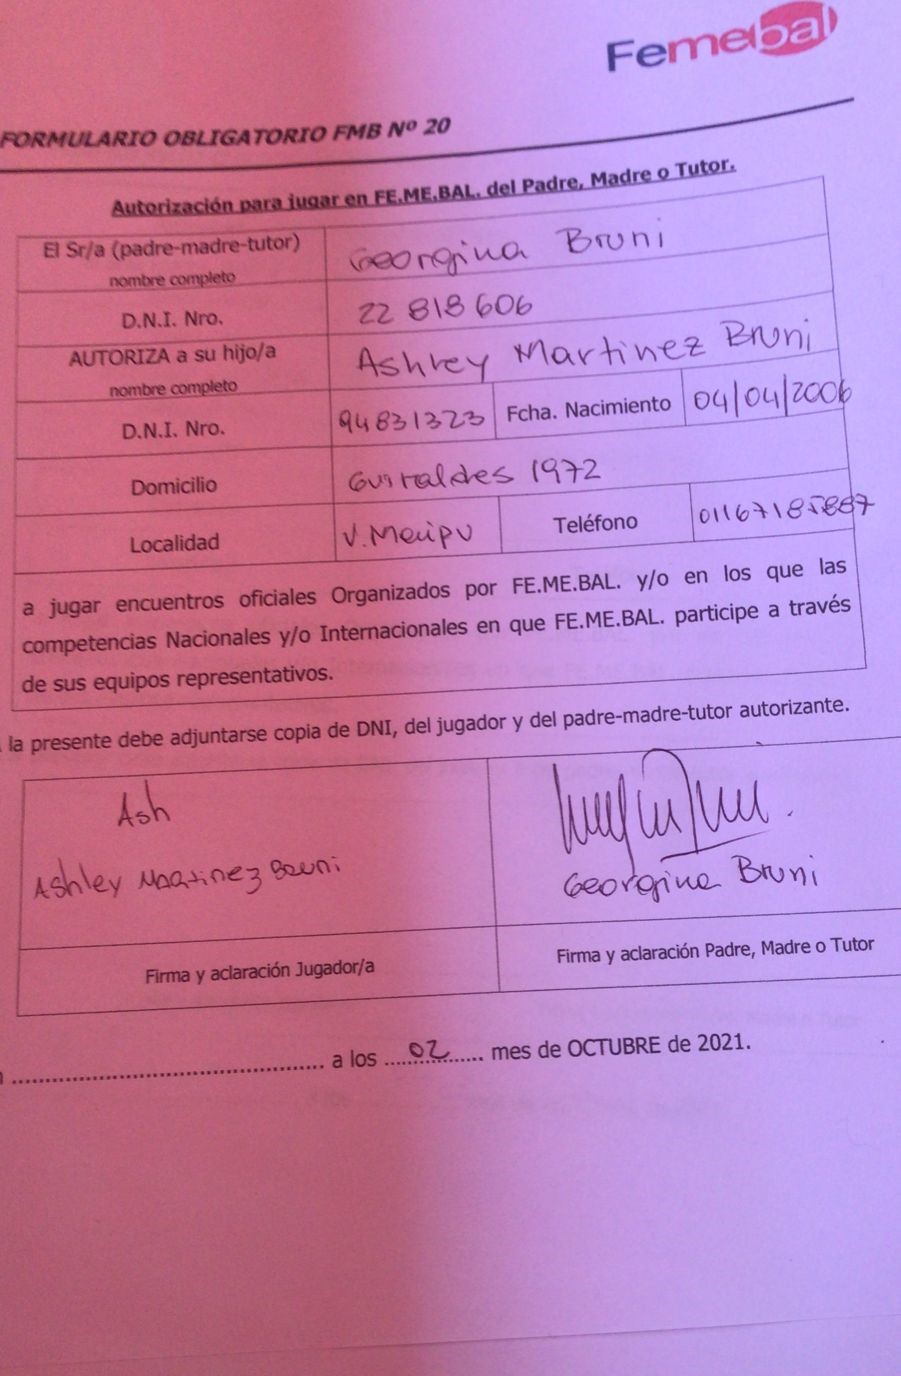 Femebal
FORMULARIO OBLIGATORIO FMB Nº 20
Autorización para jugar en FE.ME.BAL. del Padre, Madre o Tutor.
El Sr/a (padre-madre-tutor) Georgina Bruni
nombre completo
D.N.I. Nro. 22 818 606
AUTORIZA a su hijo/a Ashley Martinez Bruni
nombre completo
D.N.I. Nro. 94831323 Fcha. Nacimiento 04/04/2006
Domicilio Guiraldes 1972
Localidad V. Maipu Teléfono 01167185887
a jugar encuentros oficiales Organizados por FE.ME.BAL. y/o en los que las
competencias Nacionales y/o Internacionales en que FE.ME.BAL. participe a través
de sus equipos representativos.
la presente debe adjuntarse copia de DNI, del jugador y del padre-madre-tutor autorizante.
Ash
Ashley Martinez Bruni
Georgina Bruni
Firma y aclaración Jugador/a Firma y aclaración Padre, Madre o Tutor
a los 02 mes de OCTUBRE de 2021.